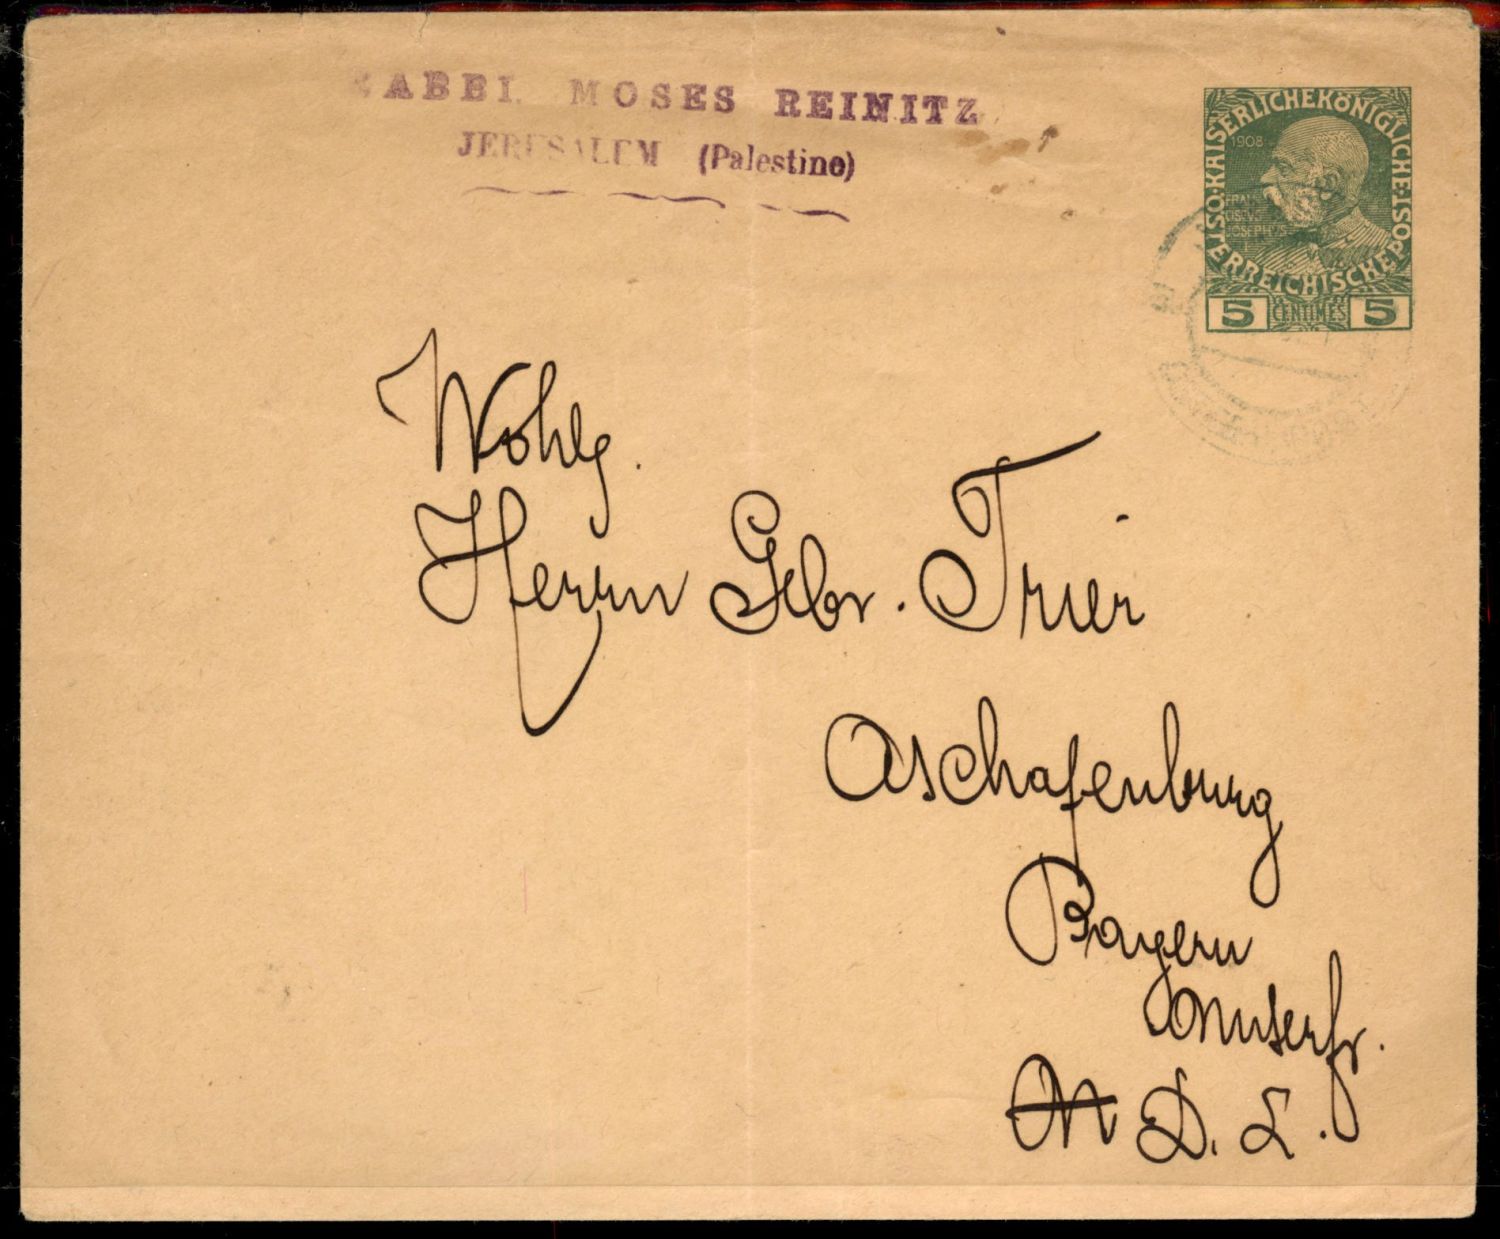 RABBI MOSES REINITZ
JERUSALEM (Palestine)
KAISERLICHEKÖNIGLICHE ÖSTERREICHISCHEPOST
1908
FRANCISCVS
IOSEPHVS
I
5 CENTIMES 5
Wohlg.
Herrn Gebr. Trier
Aschafenburg
Bayern
D. L.